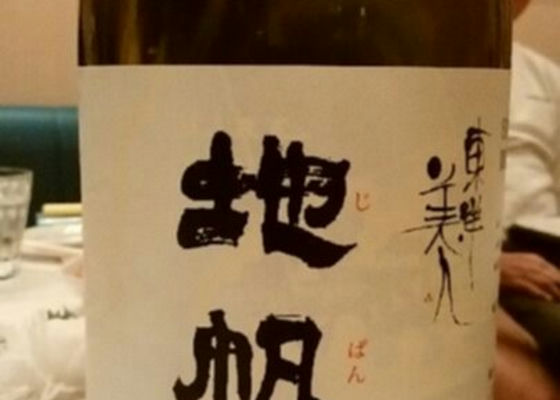 東洋美人
じぱん
地帆